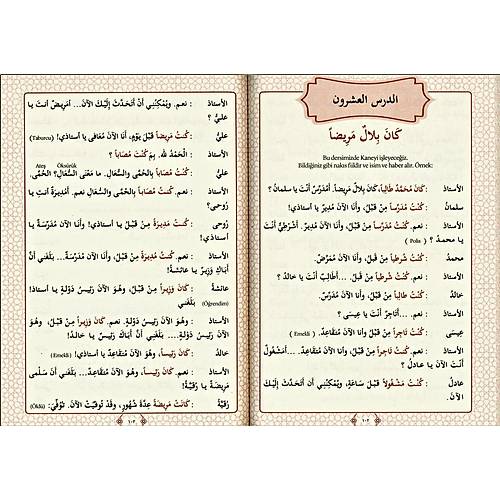 الدرس العشرون
كَانَ بِلَالٌ مَرِيضاً
Bu dersimizde Kaneyi işleyeceğiz.
Bildiğiniz gibi nakıs fiildir ve isim ve haber alır. Örnek:
الأستاذ : كَانَ مُحَمَّدٌ طَالِباً، كَانَ بِلَالٌ مَرِيضاً. أَمُدَرِّسٌ أَنْتَ يَا سلمانُ؟
سلمانُ : كُنْتُ مُدَرِّساً مِنْ قَبْلُ، وأَنَا الآنَ مُدِيرٌ يا أستاذي!
الأستاذ : نعم. كُنْتَ مُدَرِّساً مِنْ قَبْلُ، وأَنْتَ الآنَ مُدِيرٌ. أَشُرْطِيٌّ أَنْتَ
يا محمدُ ؟ ( Polis )
محمدُ : كُنْتُ شُرطِياً مِنْ قَبْلُ، وأَنَا الآنَ مُمَرِّضٌ.
الأستاذ : نعم. كُنْتَ شُرطِياً مِنْ قَبْلُ. ...أَطَالِبٌ أَنْتَ يا خالدُ ؟
خالدُ : كُنْتُ طَالِباً مِنْ قَبْلُ، وأَنَا الآنَ مُدَرِّسٌ.
الأستاذ : نعم. ...أَتَاجِرٌ أَنْتَ يا عيسى ؟
عِيسَى : كُنْتُ تَاجِراً مِنْ قَبْلُ، وأنا الآنَ مُتَقَاعِدٌ. ( Emekli )
الأستاذ : نعم. كُنتَ تَاجِراً مِنْ قَبْلُ، وأنتَ الآنَ مُتَقَاعِدٌ. ...أَمَشْغُولٌ
أَنْتَ الآنَ يا عادلُ ؟
عادلُ : كُنْتُ مَشْغُولاً قَبْلَ سَاعَةٍ، ويُمْكِنُنِي أَنْ أَتَحَدَّثَ إِلَيْكَ
الآنَ.
١٠٢
الأستاذ : نعم. ويُمْكِنُنِي أَنْ أَتَحَدَّثَ إِلَيْكَ الآنَ... أَمَرِيضٌ أنتَ يا
عليُّ ؟
عليُّ : كُنْتُ مَرِيضاً قَبْلَ يَوْمٍ، أنَا الآنَ مُعَافًى يا أستاذي! (Taburcu)
الأستاذ : الْحَمْدُ لله. بِمَ كُنْتَ مُصَاباً ؟
Öksürük Ateş
عليُّ : كُنْتُ مُصَاباً بِالْحُمَّى والسُّعَالِ. ما مَعْنَى السُّعَالِ؟ الْحُمَّى،
الأستاذ : نعم. كُنْتَ مُصَاباً بِالْحُمَّى والسُّعَالِ نعم. أَمُدِيرَةٌ أَنْتِ يا
رُوحى ؟
رُوحى : كُنْتُ مُدِيرَةً مِنْ قَبْلُ يا أستاذي! وأَنَا الآنَ مُدَرِّسَةٌ يا
أستاذي!
الأستاذ : نعم. كُنْتِ مُدِيرَةً مِنْ قَبْلُ، وأَنْتِ الآنَ مُدَرِّسَةٌ... بَلَغَنِي أَنَّ
أَبَاكِ وَزِيرٌ يا عائشةُ!
عائشةُ : كَانَ وَزِيراً مِنْ قَبْلُ، وهُوَ الآنَ رَئِيسُ دَوْلَةٍ يا أستاذُ!
بَلَغَنِي (Öğrendim)
الأستاذ : نعم. وهُوَ الآنَ رَئِيسُ دَوْلَةٍ. نعم. كَانَ وَزِيراً مِنْ قَبْلُ، وهُوَ
الآنَ رَئِيسُ دَوْلَةٍ.... بَلَغَنِي أَنَّ أَبَاكَ رَئِيسٌ يا خالدُ!
خالدُ : كَانَ رَئِيساً، وهُوَ الآنَ مُتَقَاعِدٌ يا أستاذي! (Emekli)
الأستاذ : نعم. كَانَ رَئِيساً، وهُوَ الآنَ مُتَقَاعِدٌ... بَلَغَنِي أَنَّ سَلْمَى
مَرِيضَةٌ يا رُقَيَّةُ!
رُقَيَّةُ : كَانَتْ مَرِيضَةً عِدَّةَ شُهُورٍ، وقَدْ تُوفِّيَتْ الآنَ. تُوُفِّيَ: (Öldü)
١٠٣